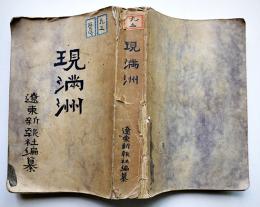 現満洲
遼東新報社編纂
現満洲
遼東新報社編纂